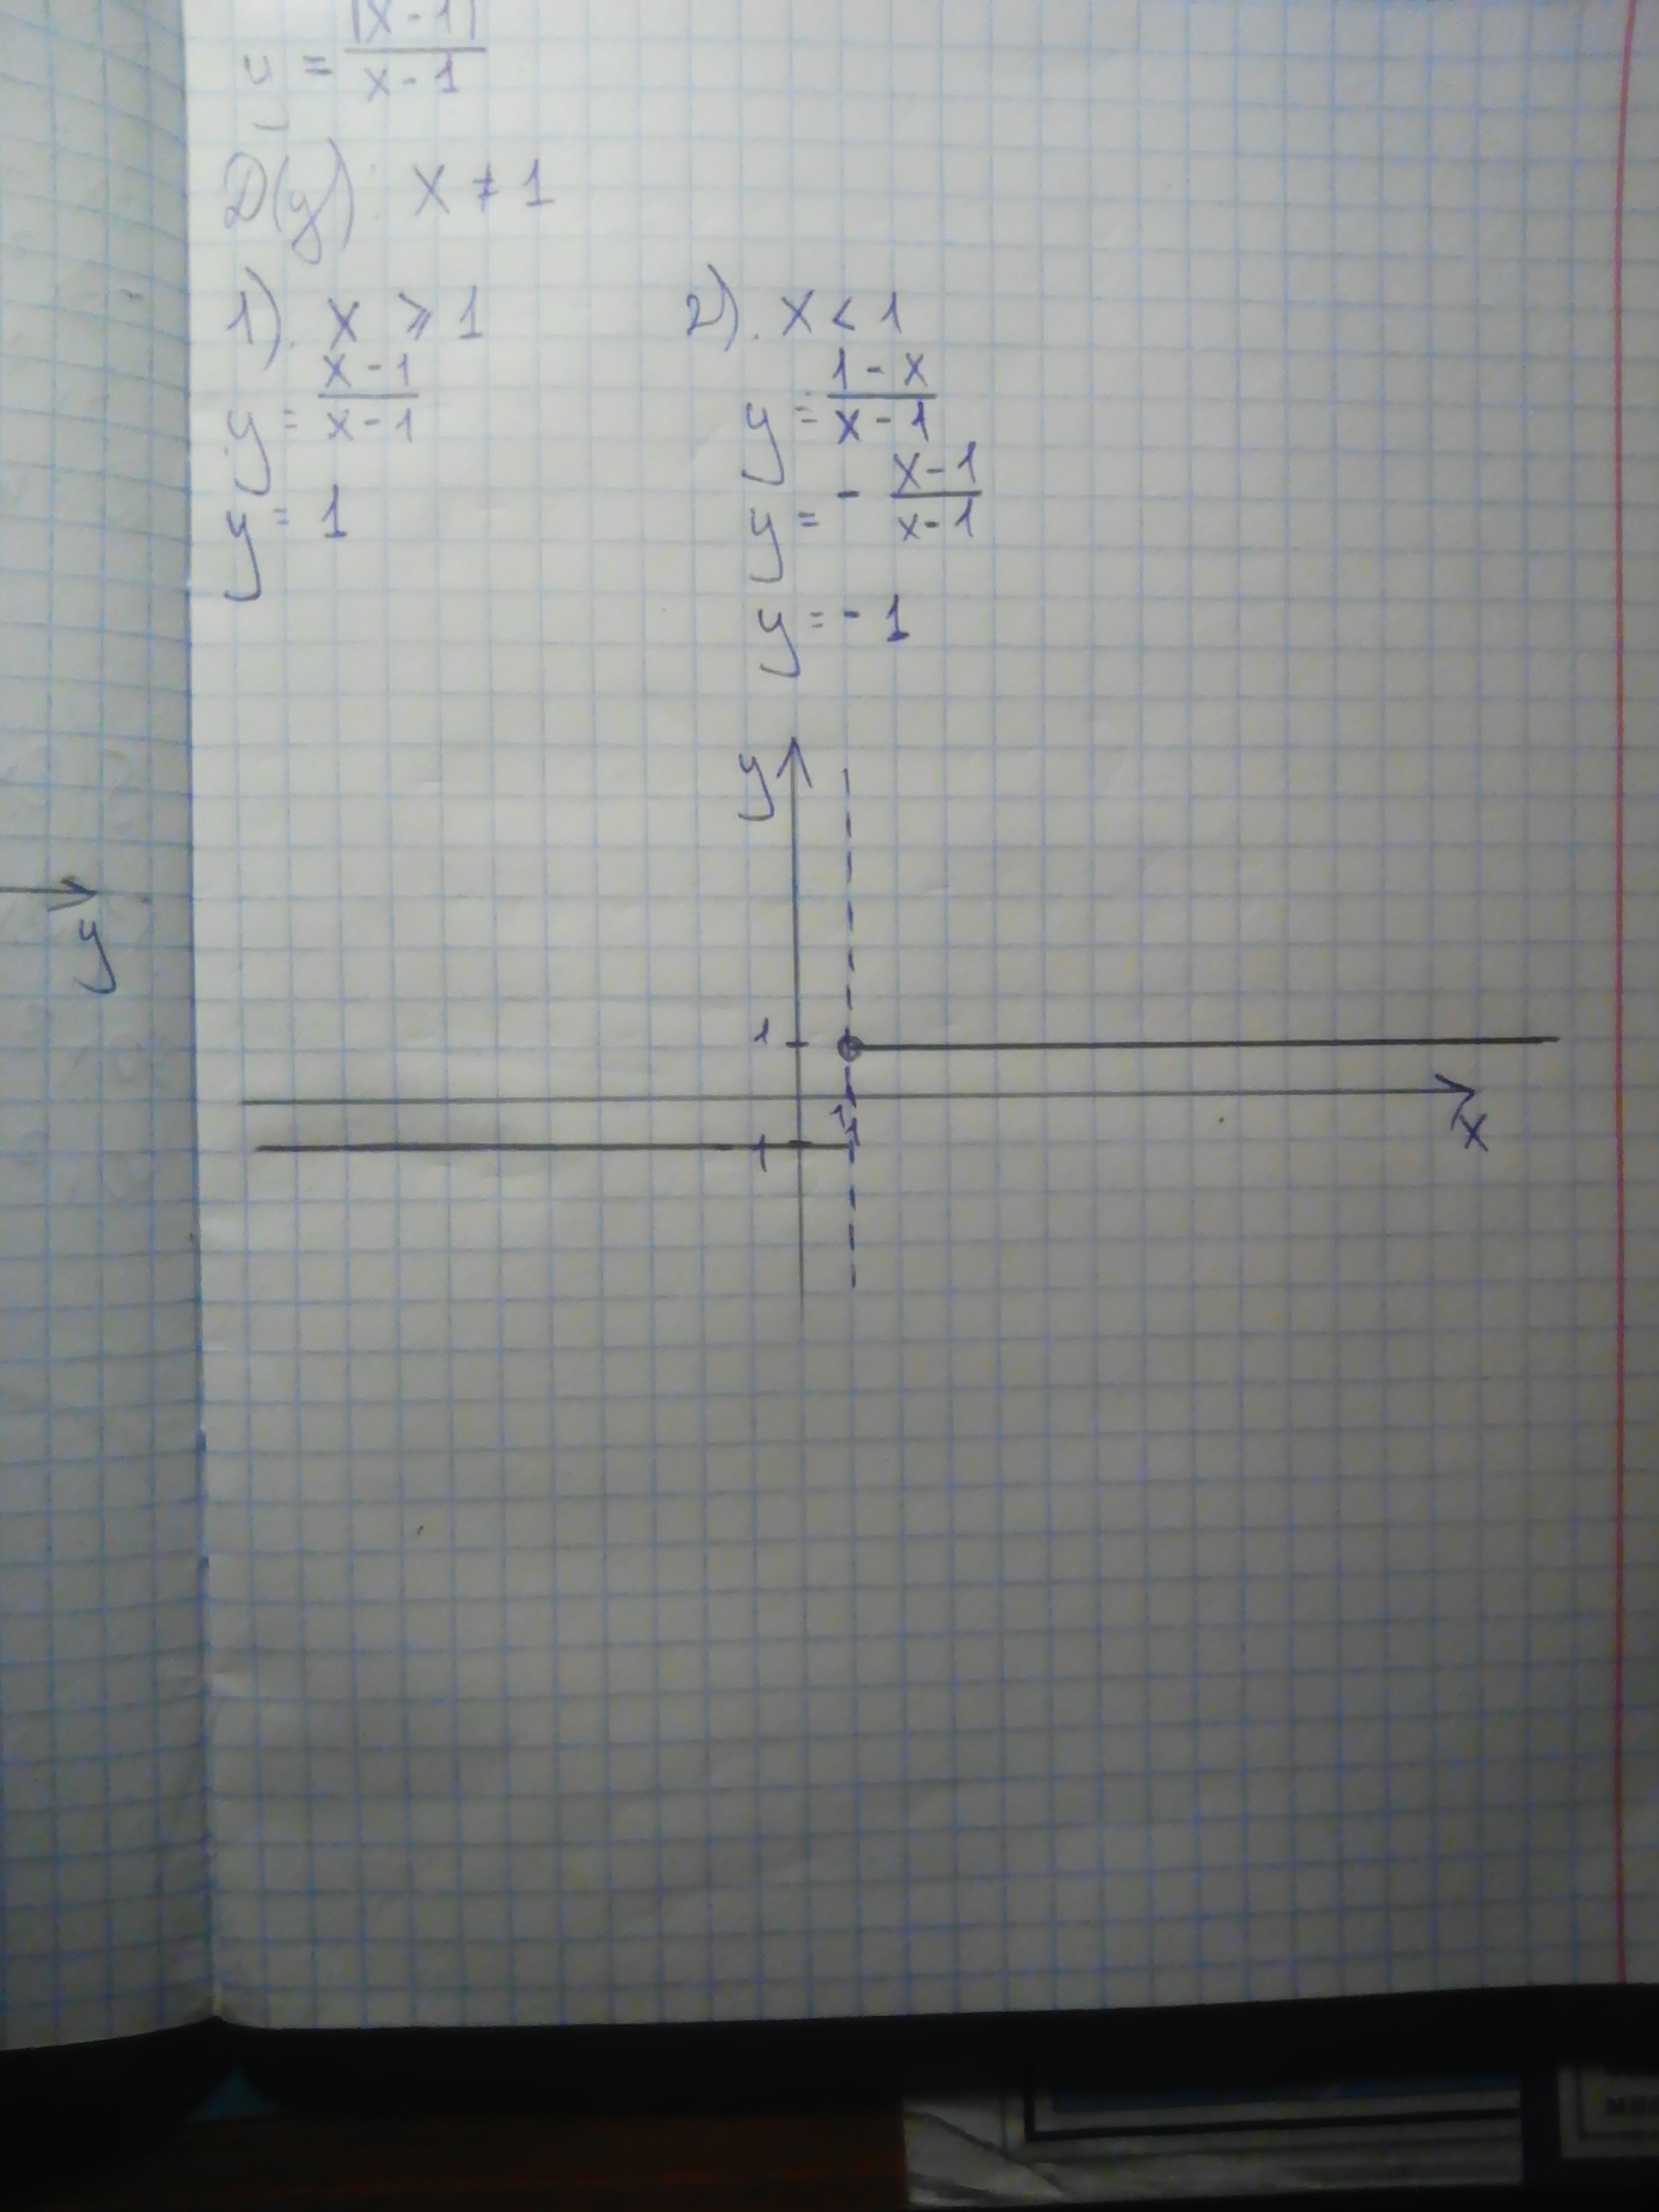 y = |x-1| / x-1
D(y): x ≠ 1
1). x ⩾ 1
y = x-1 / x-1
y = 1
2). x < 1
y = 1-x / x-1
y = - x-1 / x-1
y = -1
y
1
1
1
1
x
y